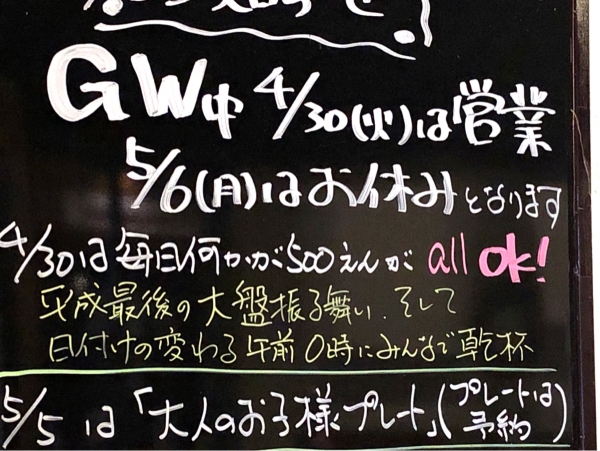 お知らせ!
GW中 4/30(火)は営業
5/6(月)はお休みとなります
4/30は毎日何かが500えんが all ok!
平成最後の大盤振る舞い、そして
日付けの変わる午前0時にみんなで乾杯
5/5は「大人のお子様プレート」(プレートは予約)